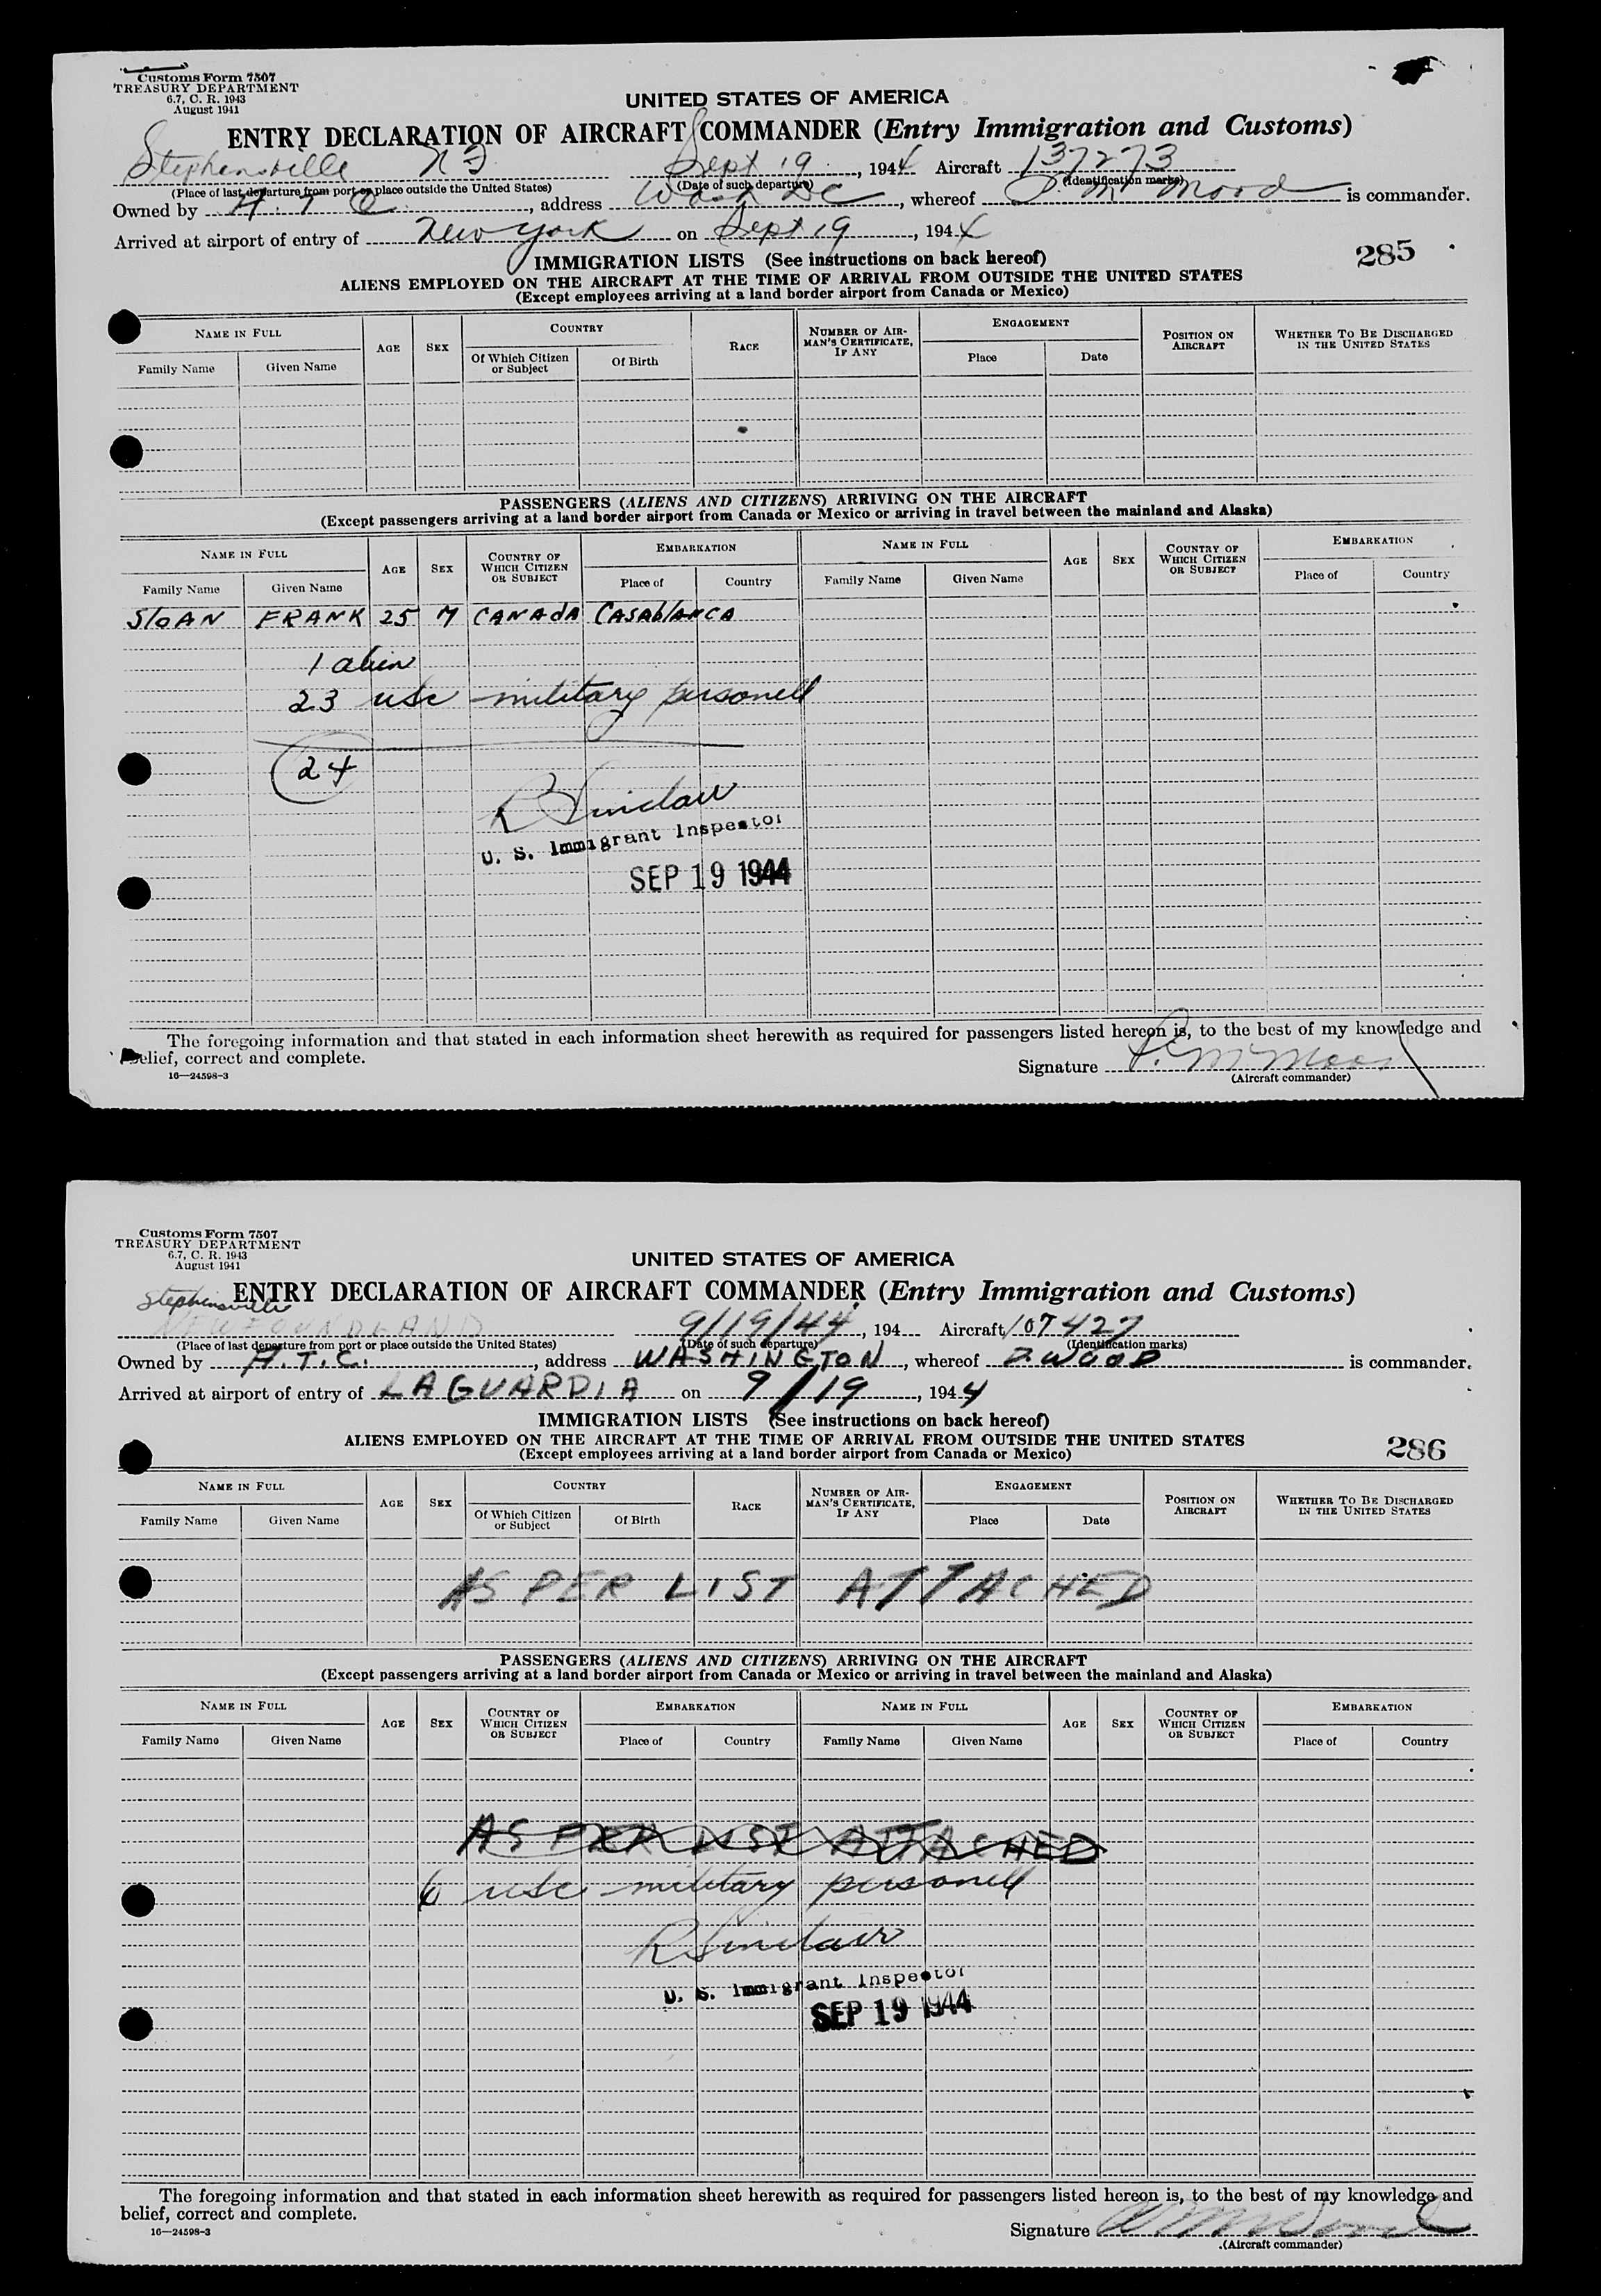 Customs Form 7507
TREASURY DEPARTMENT
6.7, C. R. 1943
August 1941
UNITED STATES OF AMERICA
ENTRY DECLARATION OF AIRCRAFT COMMANDER (Entry Immigration and Customs)
Stephenville NF Sept 19, 1944 Aircraft 137273
(Place of last departure from port or place outside the United States) (Date of such departure) (Identification marks)
Owned by A. T. C., address Wash DC, whereof P. M. Mood is commander.
Arrived at airport of entry of New York on Sept 19, 1944
285
IMMIGRATION LISTS (See instructions on back hereof)
ALIENS EMPLOYED ON THE AIRCRAFT AT THE TIME OF ARRIVAL FROM OUTSIDE THE UNITED STATES
(Except employees arriving at a land border airport from Canada or Mexico)
NAME IN FULL AGE SEX COUNTRY RACE NUMBER OF AIRMAN'S CERTIFICATE, IF ANY ENGAGEMENT POSITION ON AIRCRAFT WHETHER TO BE DISCHARGED IN THE UNITED STATES
Family Name Given Name Of Which Citizen or Subject Of Birth Place Date
PASSENGERS (ALIENS AND CITIZENS) ARRIVING ON THE AIRCRAFT
(Except passengers arriving at a land border airport from Canada or Mexico or arriving in travel between the mainland and Alaska)
NAME IN FULL AGE SEX COUNTRY OF WHICH CITIZEN OR SUBJECT EMBARKATION NAME IN FULL AGE SEX COUNTRY OF WHICH CITIZEN OR SUBJECT EMBARKATION
Family Name Given Name Place of Country Family Name Given Name Place of Country
SloAN FRANK 25 M CANAdA CASAblANCA
1 alien
23 usc military personell
24
R Sinclair
U. S. Immigrant Inspector
SEP 19 1944
The foregoing information and that stated in each information sheet herewith as required for passengers listed hereon is, to the best of my knowledge and
belief, correct and complete.
Signature
(Aircraft commander)
16—24598-3
Customs Form 7507
TREASURY DEPARTMENT
6.7, C. R. 1943
August 1941
UNITED STATES OF AMERICA
ENTRY DECLARATION OF AIRCRAFT COMMANDER (Entry Immigration and Customs)
Stephensville
NEWFOUNDLAND 9/19/44, 194 Aircraft 107427
(Place of last departure from port or place outside the United States) (Date of such departure) (Identification marks)
Owned by A.T.C., address WASHINGTON, whereof D. WOOD is commander.
Arrived at airport of entry of LAGUARDIA on 9/19, 1944
IMMIGRATION LISTS (See instructions on back hereof)
ALIENS EMPLOYED ON THE AIRCRAFT AT THE TIME OF ARRIVAL FROM OUTSIDE THE UNITED STATES
(Except employees arriving at a land border airport from Canada or Mexico)
286
NAME IN FULL AGE SEX COUNTRY RACE NUMBER OF AIRMAN'S CERTIFICATE, IF ANY ENGAGEMENT POSITION ON AIRCRAFT WHETHER TO BE DISCHARGED IN THE UNITED STATES
Family Name Given Name Of Which Citizen or Subject Of Birth Place Date
AS PER LIST ATTACHED
PASSENGERS (ALIENS AND CITIZENS) ARRIVING ON THE AIRCRAFT
(Except passengers arriving at a land border airport from Canada or Mexico or arriving in travel between the mainland and Alaska)
NAME IN FULL AGE SEX COUNTRY OF WHICH CITIZEN OR SUBJECT EMBARKATION NAME IN FULL AGE SEX COUNTRY OF WHICH CITIZEN OR SUBJECT EMBARKATION
Family Name Given Name Place of Country Family Name Given Name Place of Country
AS PER LIST ATTACHED
6 usc military personell
R Sinclair
U. S. Immigrant Inspector
SEP 19 1944
The foregoing information and that stated in each information sheet herewith as required for passengers listed hereon is, to the best of my knowledge and
belief, correct and complete.
Signature
(Aircraft commander)
16—24598-3